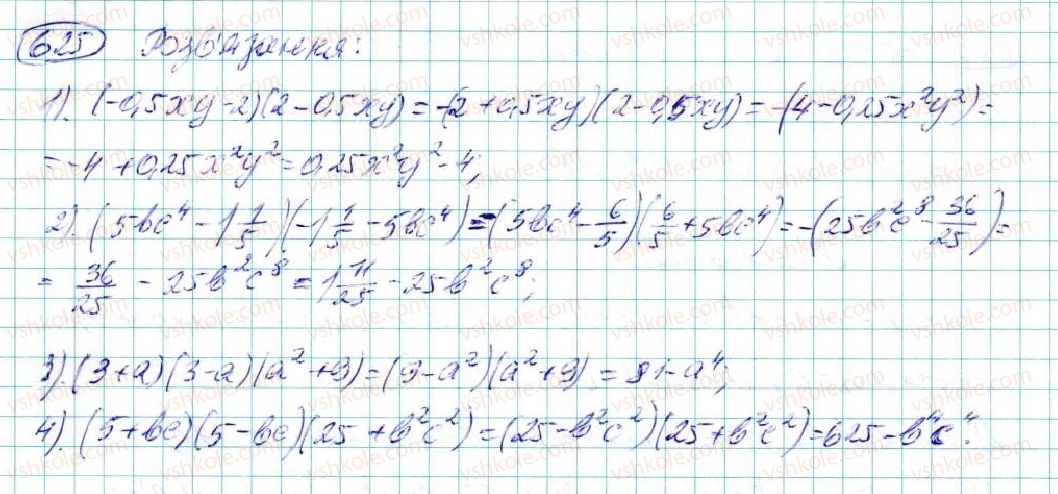 625 Розв'язання:
1). (-0,5xy-2)(2-0,5xy)=-(2+0,5xy)(2-0,5xy)=-(4-0,25x²y²)=
=-4+0,25x²y²=0,25x²y²-4;
2). (5bc⁴-1 1/5)(-1 1/5-5bc⁴)=-(5bc⁴-6/5)(6/5+5bc⁴)=-(25b²c⁸-36/25)=
=36/25-25b²c⁸=1 11/25-25b²c⁸;
3). (3+a)(3-a)(a²+9)=(9-a²)(a²+9)=81-a⁴;
4). (5+bc)(5-bc)(25+b²c²)=(25-b²c²)(25+b²c²)=625-b⁴c⁴.
vshkole.com